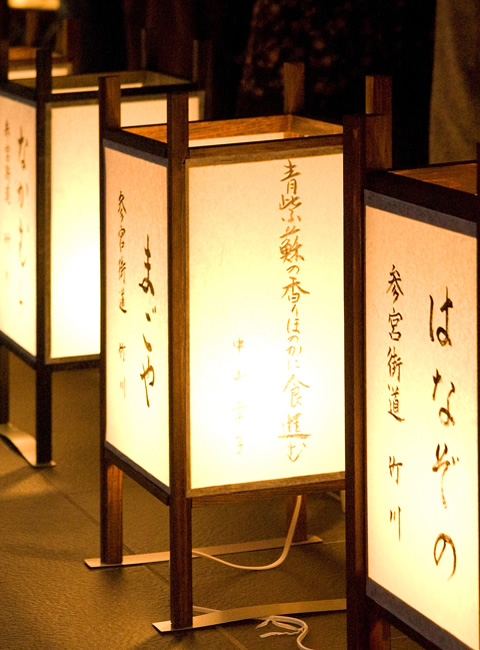 はなぞの
参宮街道 竹川
青紫蘇の香りほのかに食進む
中山
まごや
参宮街道 竹川
なかむ
参宮街道 竹